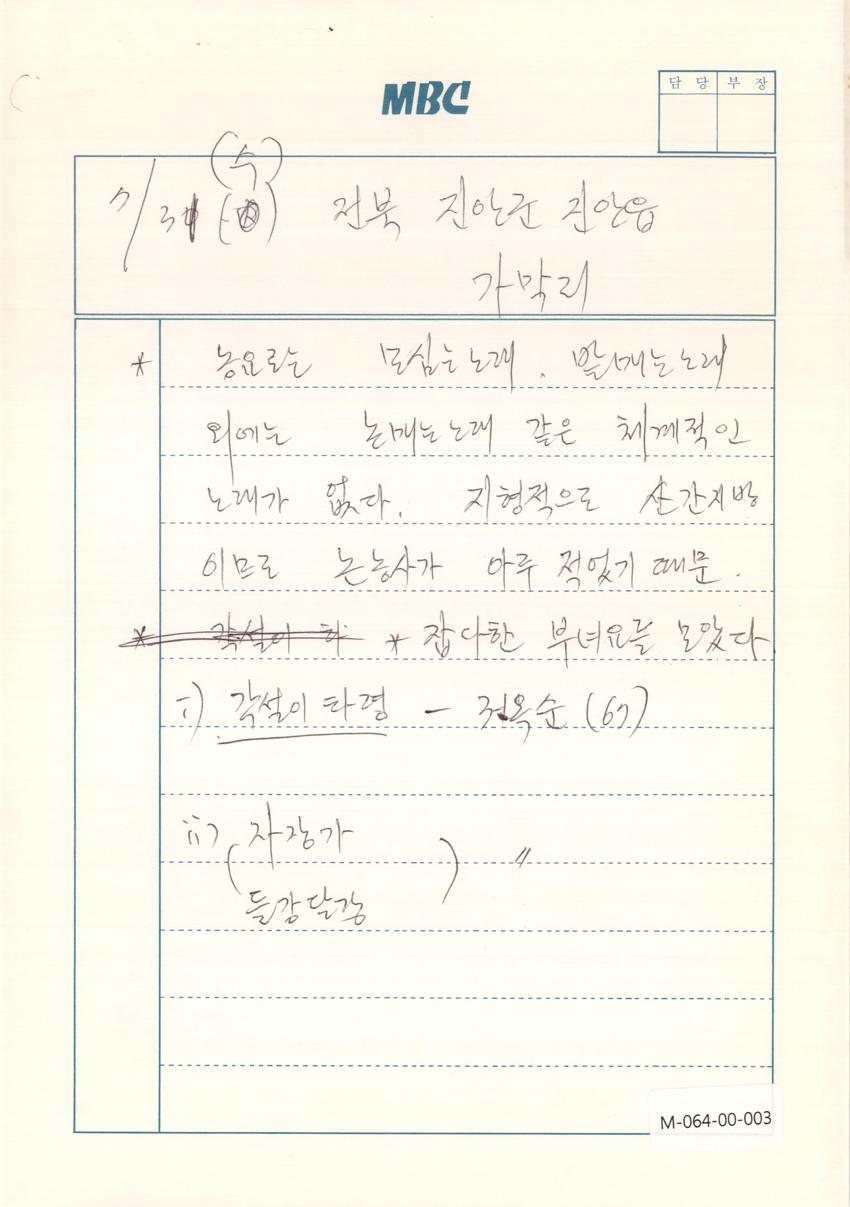 MBC
담 당 부 장
(수)
7/31 전북 진안군 진안읍
가막리
* 농요로는 모심는노래. 밭매는노래
외에는 논매는노래 같은 체계적인
노래가 없다. 지형적으로 산간지방
이므로 논농사가 아주 적었기 때문.
* 각설이 타 * 잡다한 부녀요를 모았다
i) 각설이 타령 - 전옥순 (67)
ii) 자장가
( ) 〃
들강달강
M-064-00-003